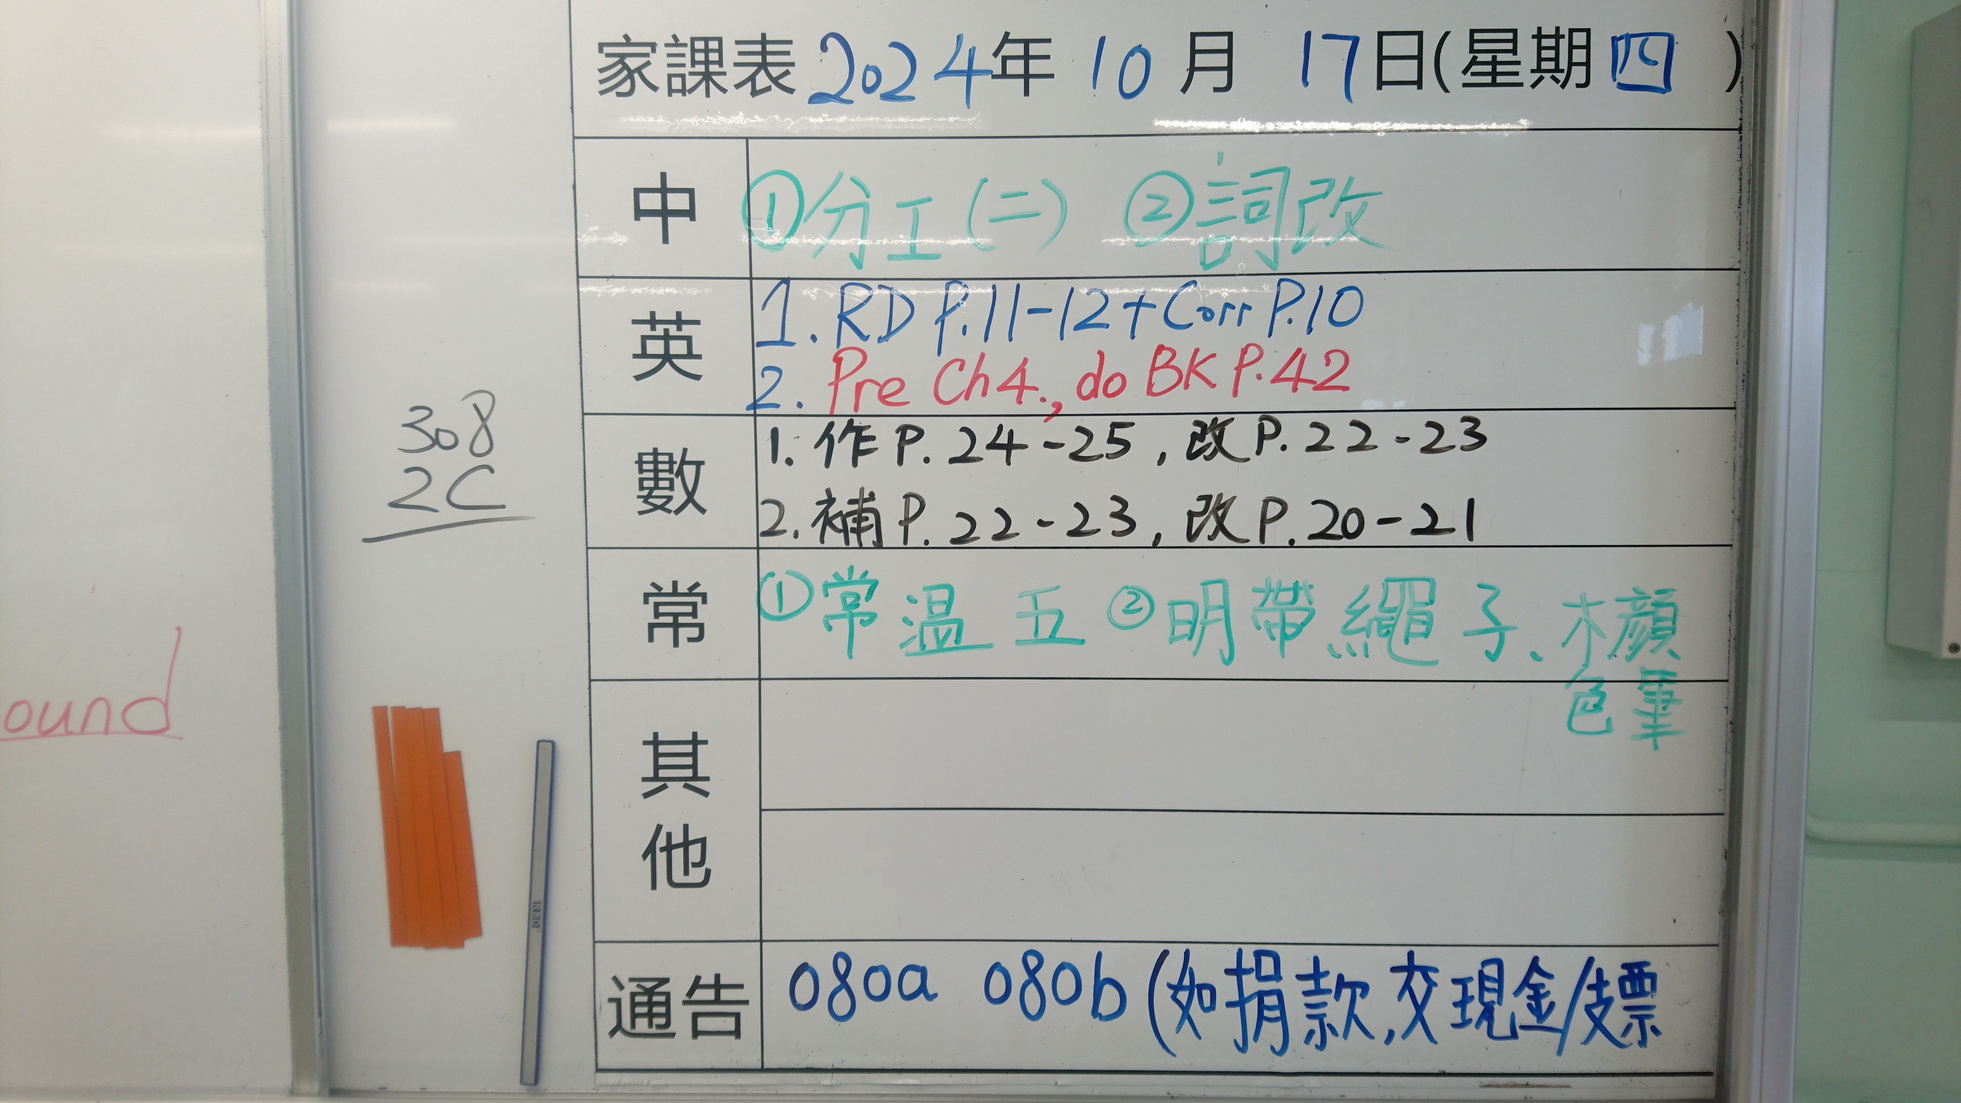 家課表 2024年 10月 17日(星期四)
中 ①分工(二) ②詞改
英 1. RD P.11-12+Corr P.10
2. Pre Ch4., do BK P.42
數 1. 作P.24-25, 改P.22-23
2. 補P.22-23, 改P.20-21
常 ①常温五 ②明帶繩子、木顏
色筆
其他
通告 080a 080b (如捐款,交現金/支票
308
2C
ound